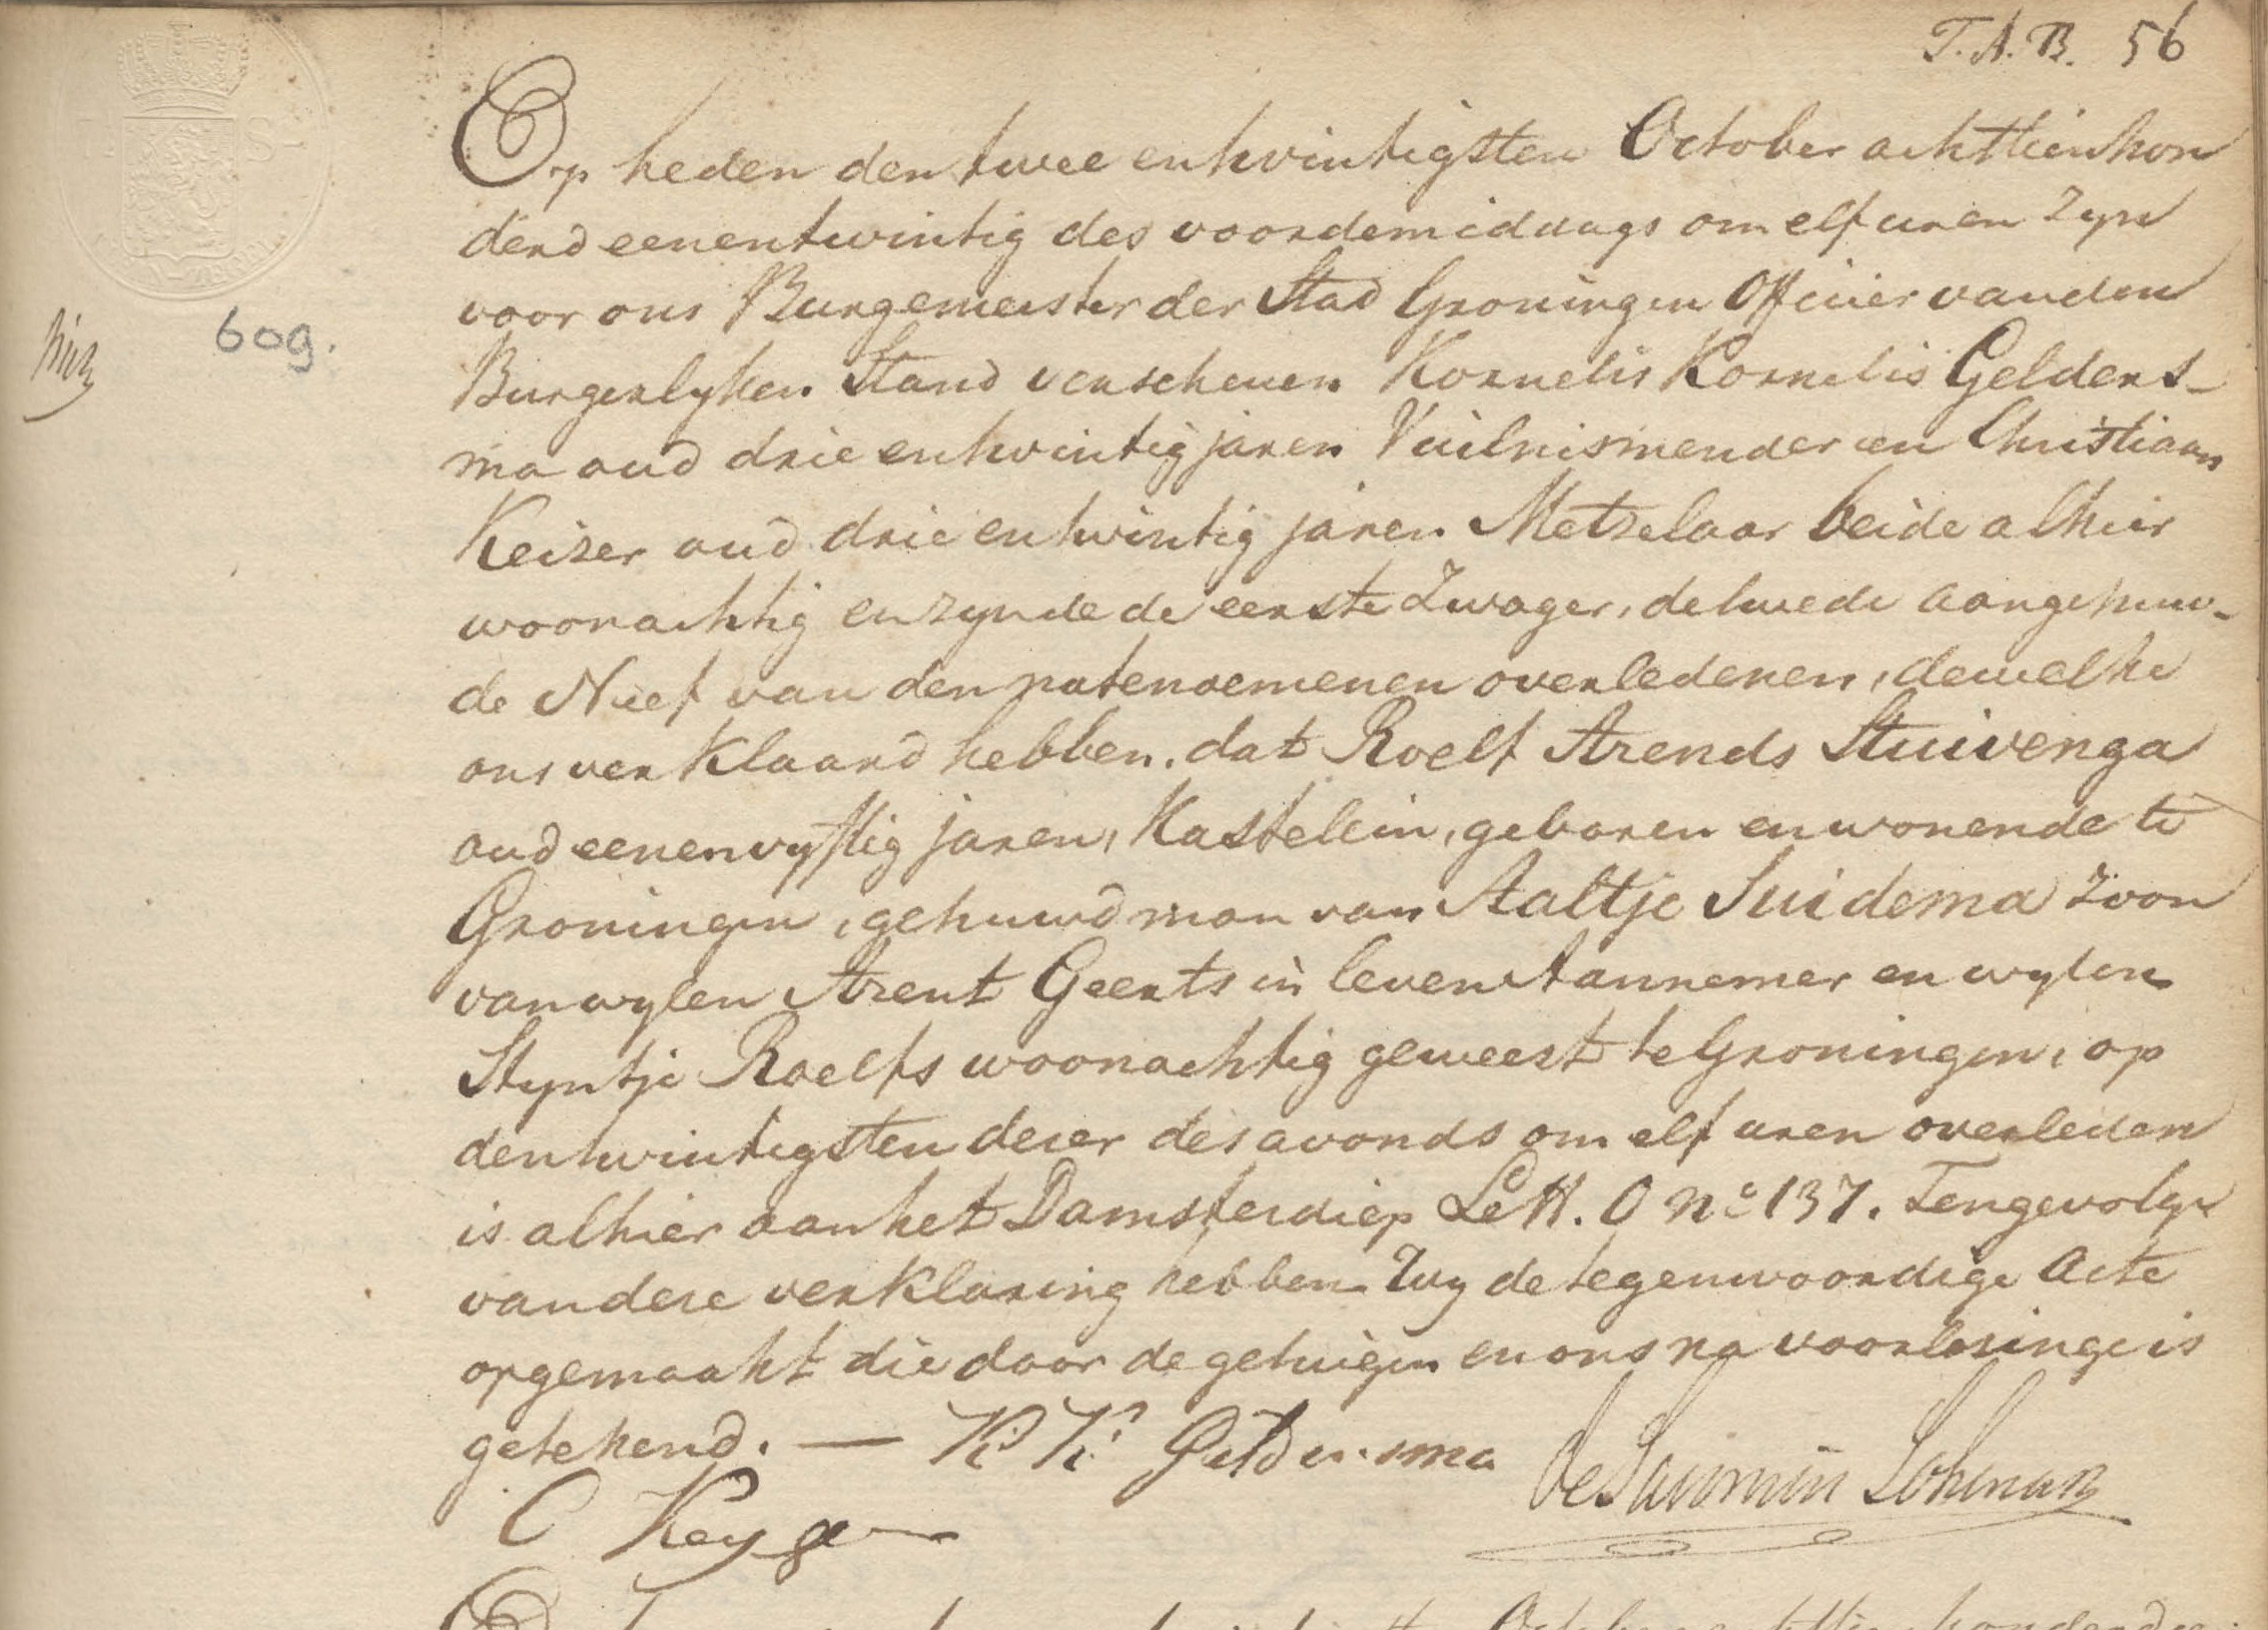 T. A. B. 56
Op heden den twee entwintigsten October achttienhon
derd eenentwintig des voordemiddags om elf uren zyn
voor ons Burgemeister der Stad Groningen Officier van den
609.
Burgerlyken Stand verschenen Kornelis Kornelis Gelders-
ma oud drie entwintig jaren Vuilnismender en Christiaan
Keizer oud drie entwintig jaren Metzelaar beide alhier
woonachtig en zynde de eerste Zwager, de twede aangehuw-
de Neef van den natenoemenen overledenen, dewelke
ons verklaard hebben, dat Roelf Arends Stuivenga
oud eenenvyftig jaren, Kastelein, geboren en wonende te
Groningen, gehuwd man van Aaltje Suidema zoon
van wylen Arent Geerts in leven Aannemer en wylen
Styntje Roelfs woonachtig geweest te Groningen, op
den twintigsten dezer des avonds om elf uren overleden
is alhier aan het Damsterdiep Lett. O No 137. Tengevolge
van deze verklaring hebben Wy de tegenwoordige Acte
opgemaakt die door de getuigen en ons na voorlezinge is
getekend. — K. K. Geldersma
de Savornin Lohman
C Keyzer